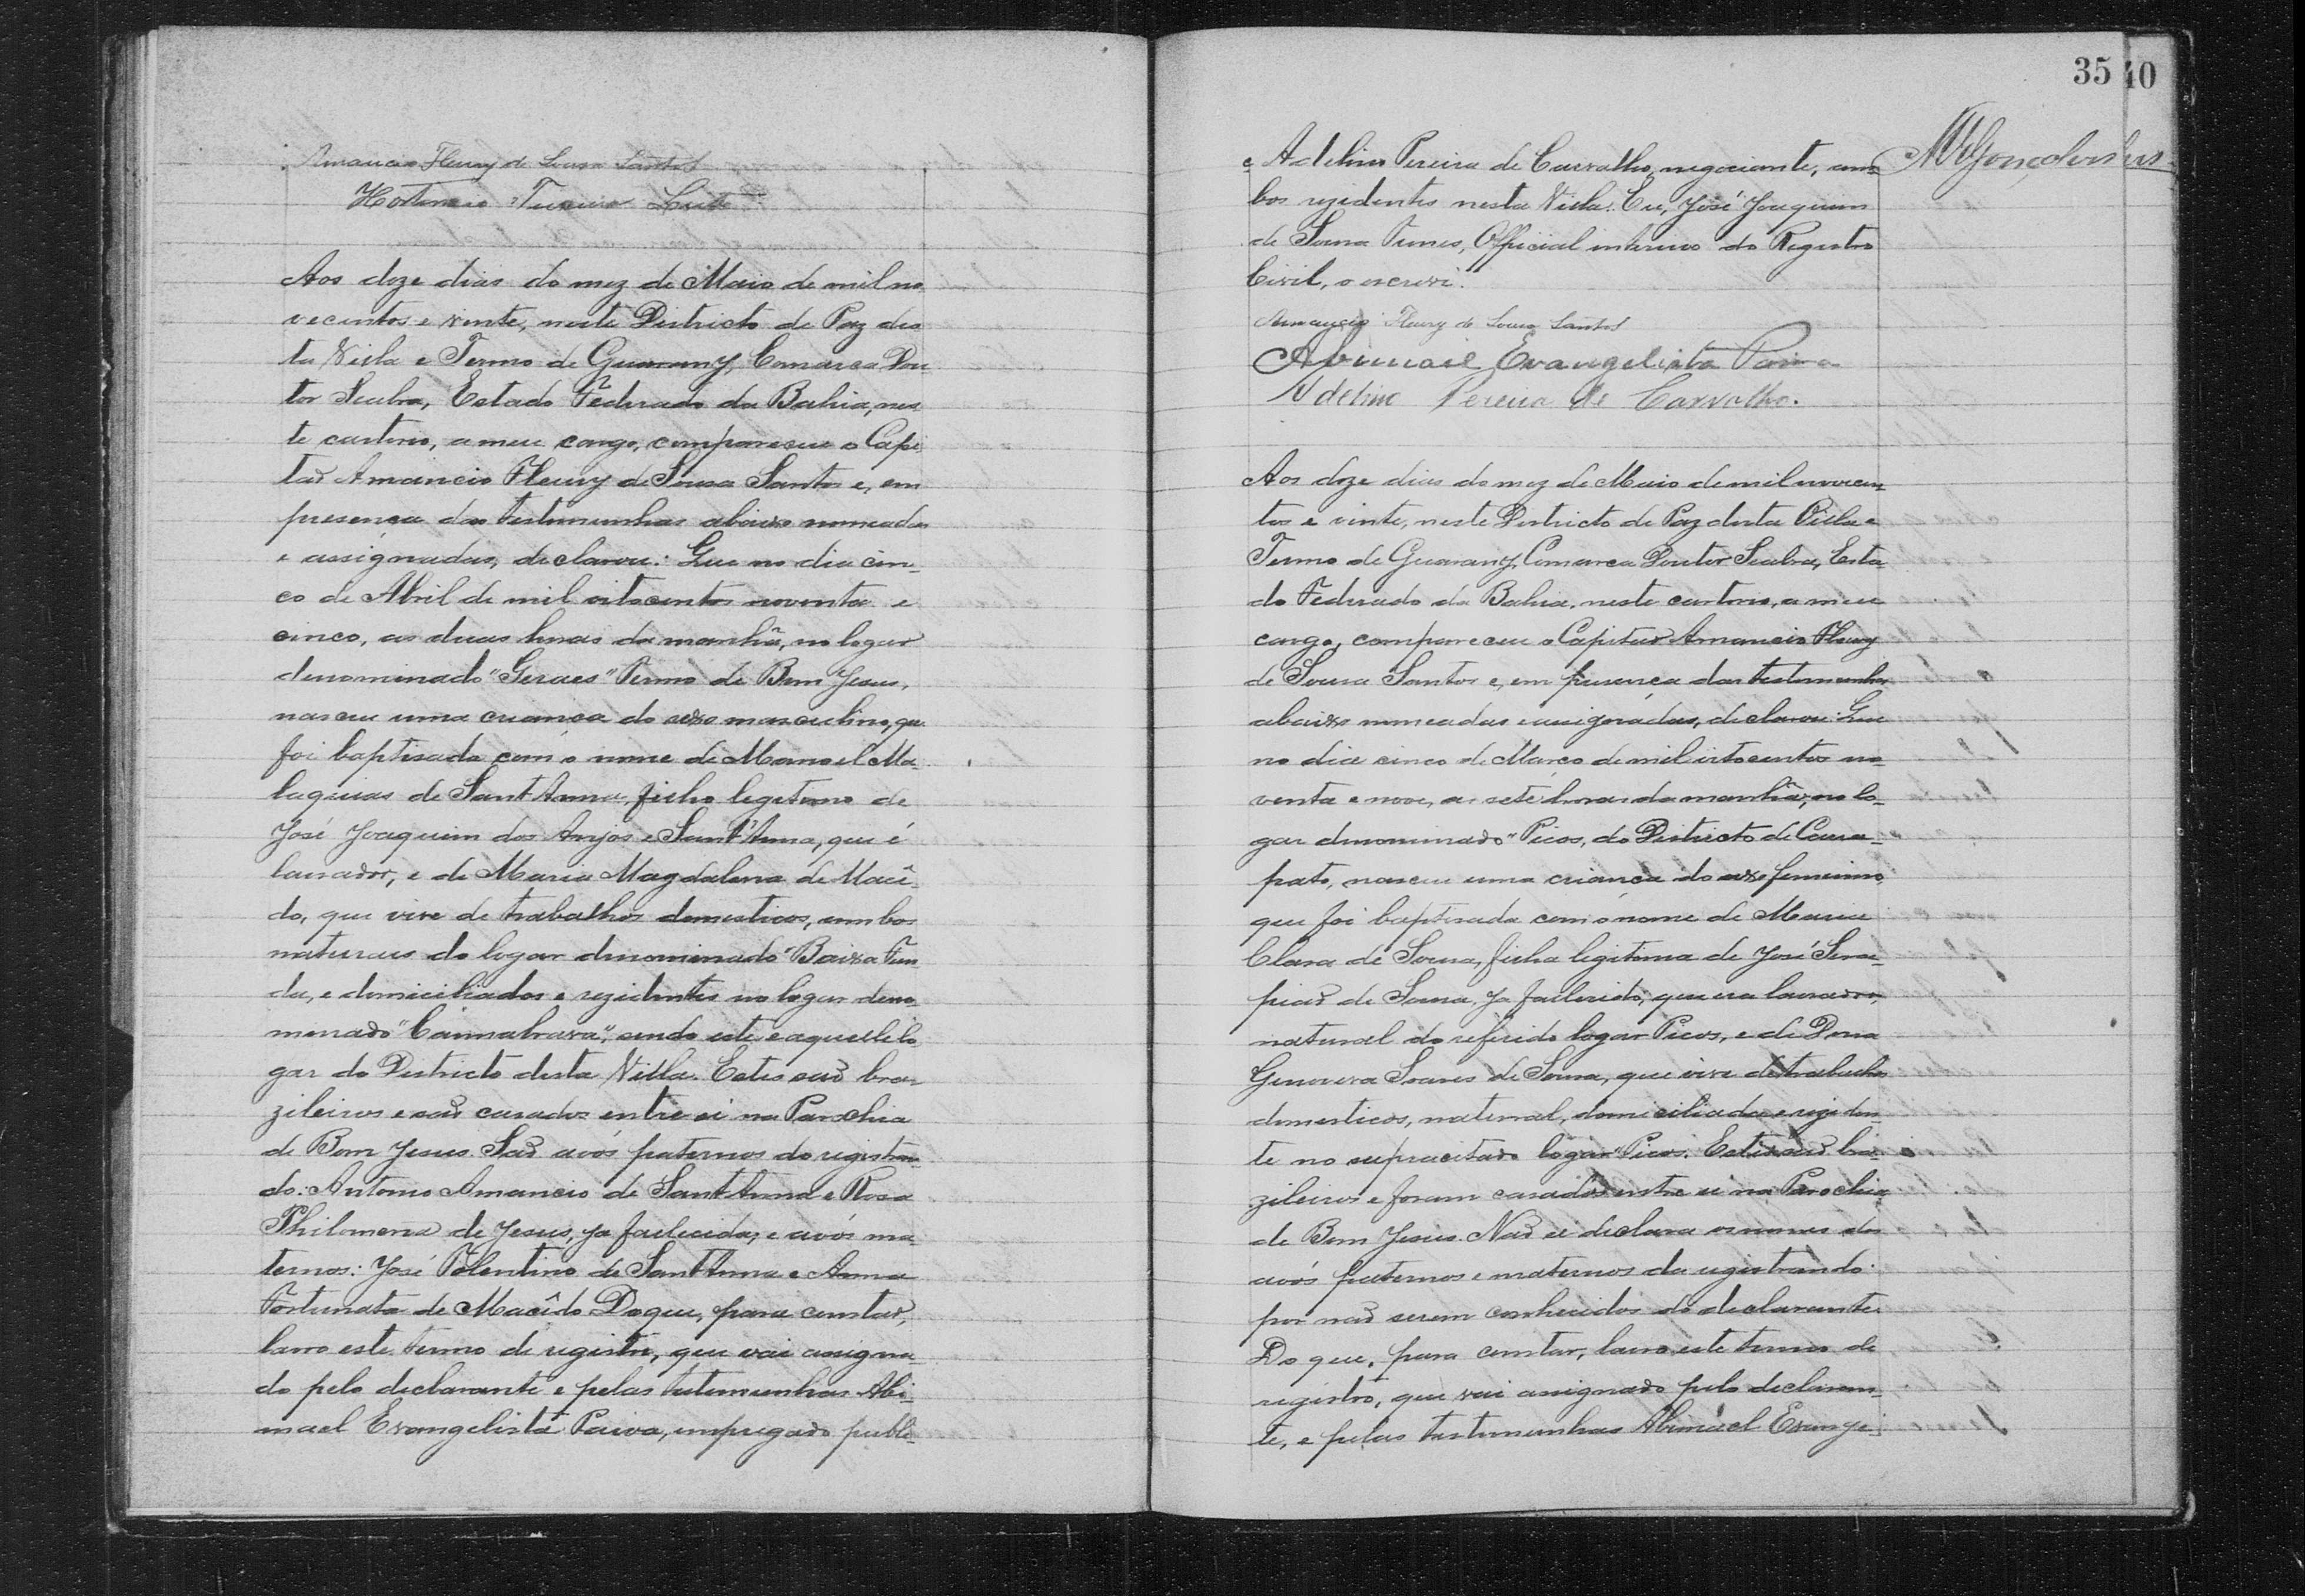 Amancio Fleury de Sousa Santos
Aos doze dias do mez de Maio de mil no
vecentos e vinte, neste Districto de Paz des
ta Villa e Termo de Guarany, Comarca Dou
tor Seabra, Estado Federado da Bahia, nes
te cartorio, a meu cargo, compareceu o Capi
tão Amancio Fleury de Sousa Santos e, em
presença das testemunhas abaixo nomeadas
e assignadas, declarou: Que no dia cin-
co de Abril de mil oitocentos noventa e
cinco, as duas horas da manhã, no logar
denominado "Geraes" Termo de Bom Jesus,
nasceu uma criança do sexo masculino, que
foi baptisada com o nome de Manoel Ma-
laquias de Sant'Anna, filho legitimo de
José Joaquim dos Anjos e Sant'Anna, que é
lavrador, e de Maria Magdalena de Macê-
do, que vive de trabalhos domesticos, ambos
naturaes do logar denominado "Baixa Fun
da, e domiciliados e rezidentes no logar deno
menado "Cannabrava", sendo este e aquelle lo-
gar do Districto desta Villa. Estes são bra-
zileiros e são casados entre si na Parochia
de Bom Jesus. São avós paternos do registran-
do: Antonio Amancio de Sant'Anna e Rosa
Philomena de Jesus, ja fallecida, e avós ma-
ternos: José Tolentino de Sant'Anna e Anna
Fortunata de Macêdo. Do que, para constar,
lavro este termo de registro, que vai assigna-
do pelo declarante e pelas testemunhas Abi-
mael Evangelista Paiva, empregado publi-
35 40
e Adelino Pereira de Carvalho, negociante, am-
bos rezidentes nesta Villa. Eu, José Joaquim
de Sousa Official interino do Registro
Civil, o escrevi.
Amancio Fleury de Sousa Santos
Abimael Evangelista Paiva
Adelino Pereira de Carvalho.
Aos doze dias do mez de Maio de mil novecen-
tos e vinte, neste Districto de Paz desta Villa e
Termo de Guarany, Comarca Doutor Seabra, Esta-
do Federado da Bahia, neste cartorio, a meu
cargo, compareceu o Capitão Amancio Fleury
de Sousa Santos e, em presença das testemunhas
abaixo nomeadas e assignadas, declarou: Que
no dia cinco de Março de mil oitocentos no-
venta e nove, as sete horas da manhã, no lo-
gar denominado "Picos, do Districto de Carra-
pato, nasceu uma criança do sexo feminino,
que foi baptisada com o nome de Maria
Clara de Sousa, filha legitima de José Sera-
pião de Sousa, ja fallecido, que era lavrador,
natural do referido logar Picos, e de Dona
Genoveva Soares de Sousa, que vive de trabalhos
domesticos, natural, domiciliada e reziden-
te no supracitado logar "Picos. Estes são bra-
zileiros e foram casados entre si na Parochia
de Bom Jesus. Não se declara os nomes dos
avós paternos e maternos da registrando
por não serem conhecidos do declarante.
Do que, para constar, lavro este termo de
registro, que vai assignado pelo declaran-
te, e pelas testemunhas Abimael Evange-